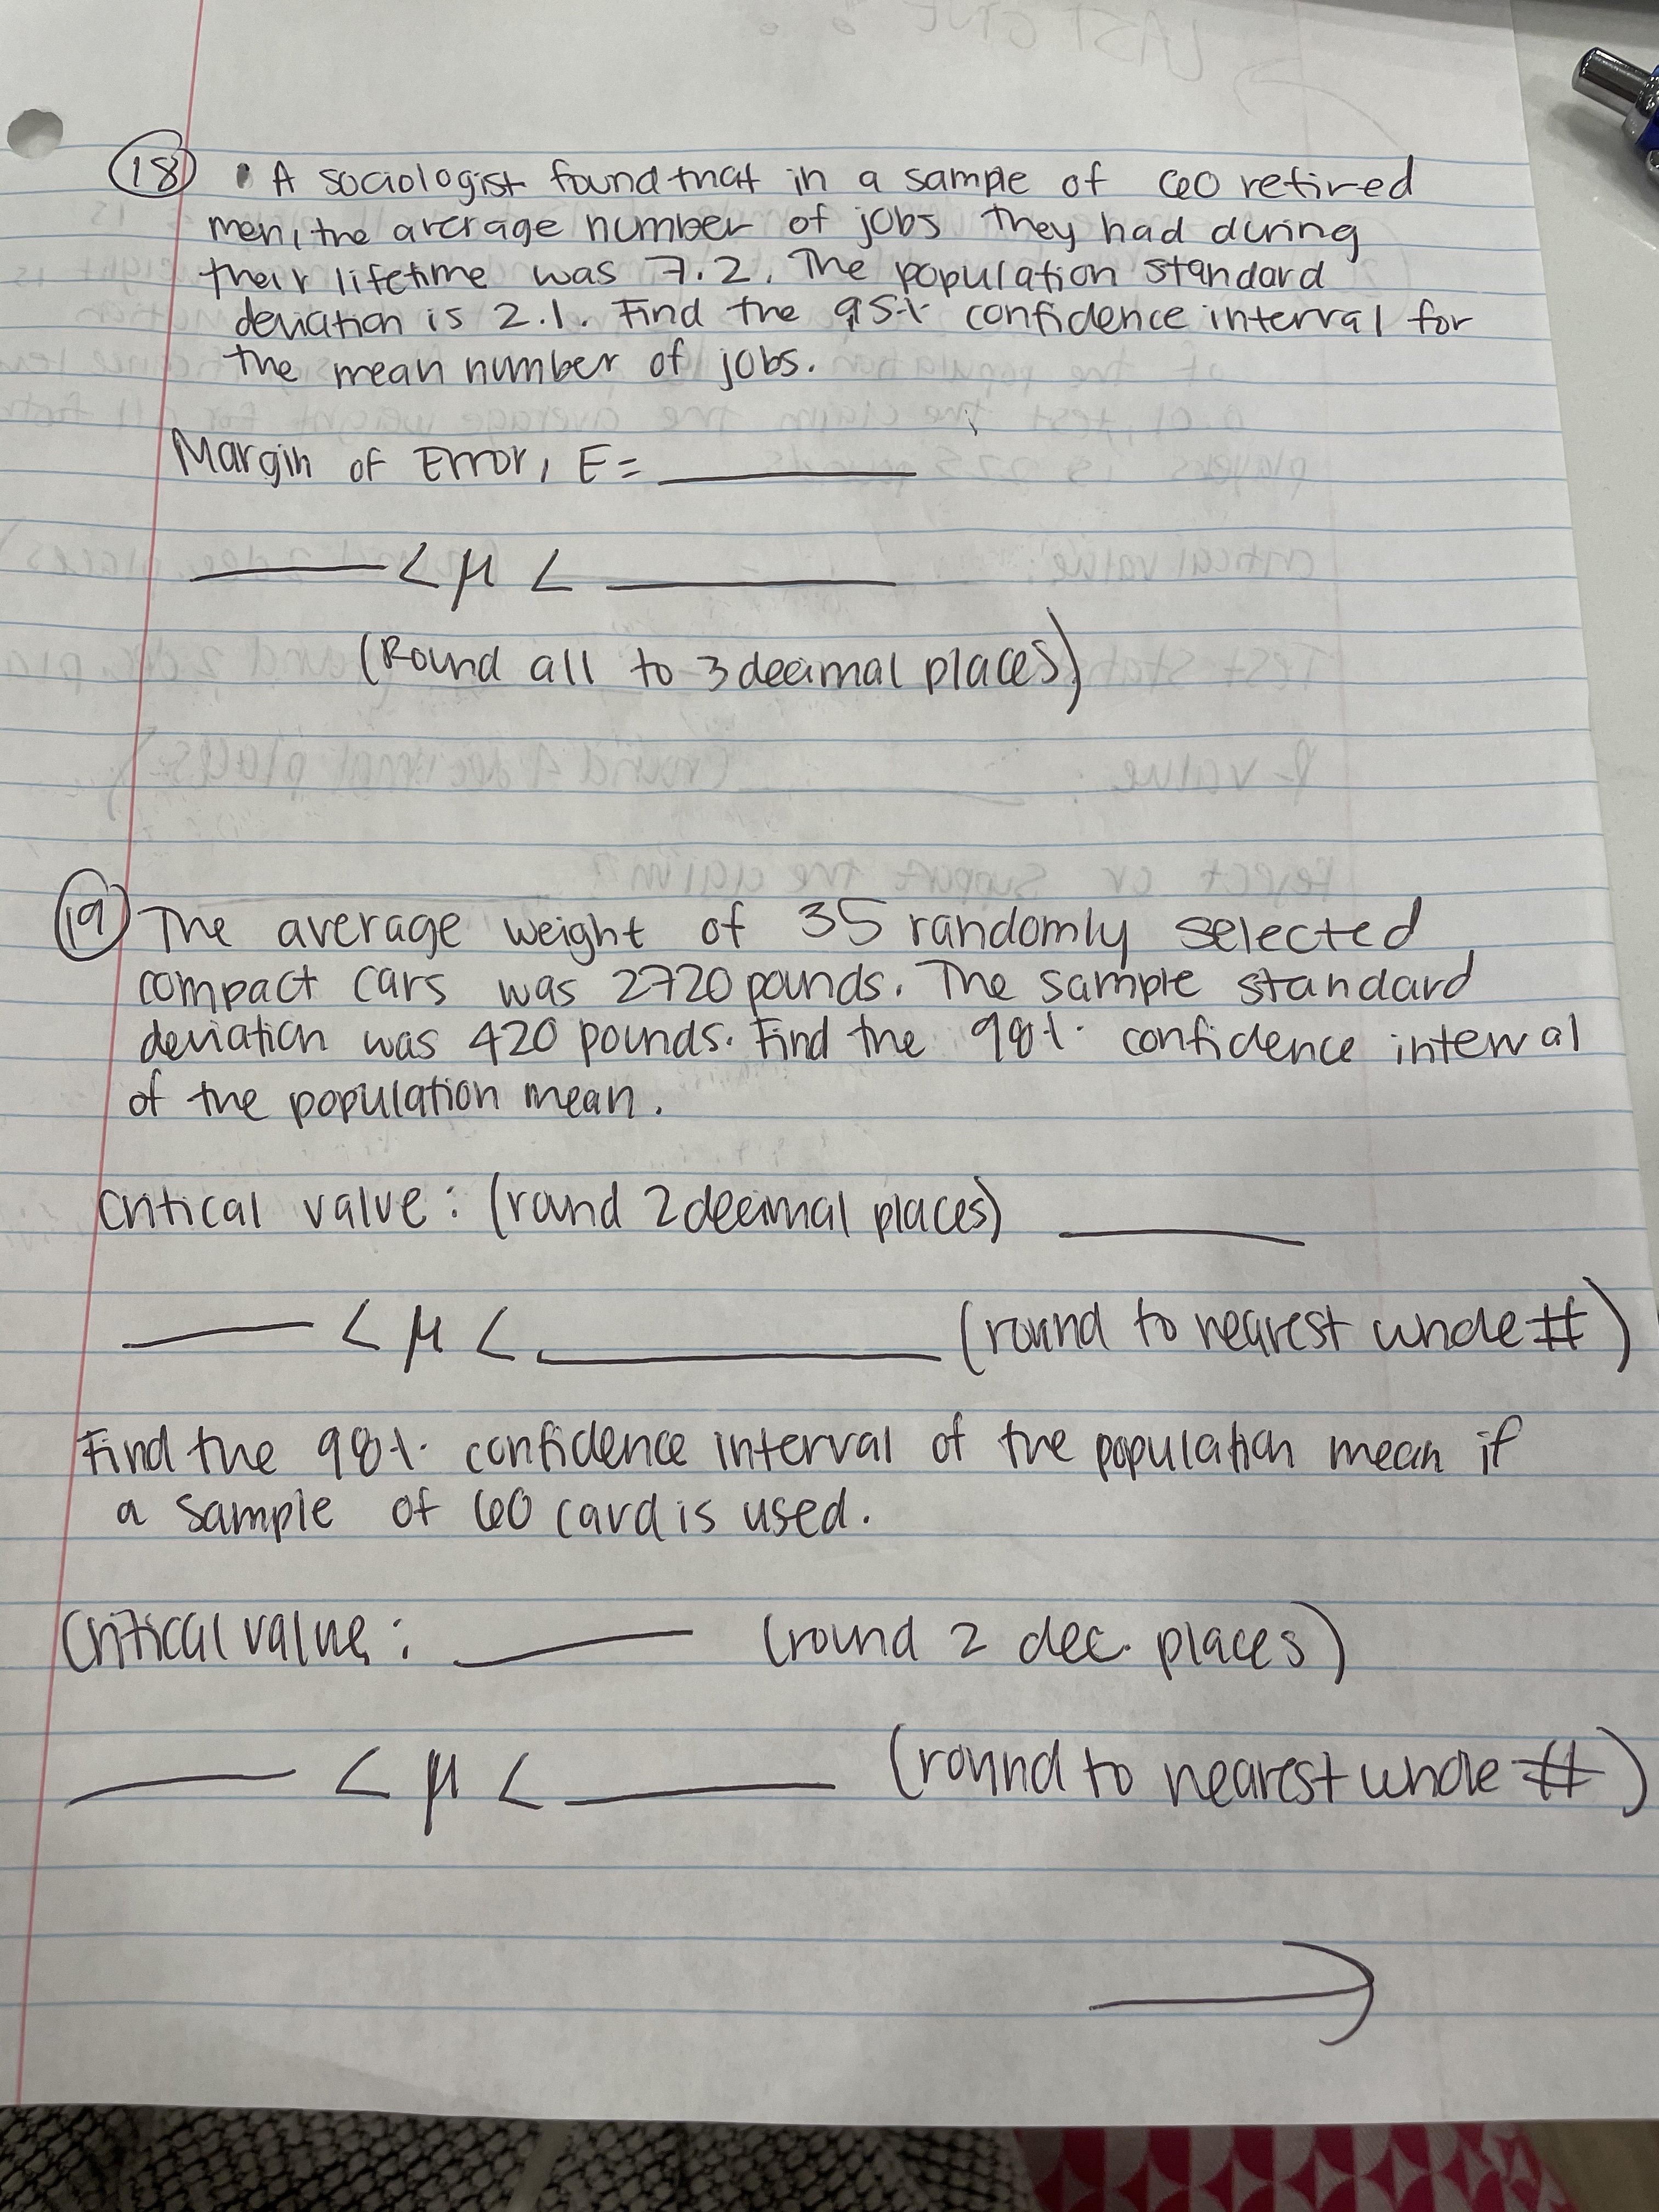 18 • A sociologist found that in a sample of 60 retired
men, the average number of jobs they had during
their lifetime was 7.2. The population standard
deviation is 2.1. Find the 95% confidence interval for
the mean number of jobs.
Margin of Error, E = ______
______ < μ < ______
(Round all to 3 decimal places)
19 The average weight of 35 randomly selected
compact cars was 2720 pounds. The sample standard
deviation was 420 pounds. Find the 98% confidence interval
of the population mean.
critical value: (round 2 decimal places) ______
______ < μ < ______ (round to nearest whole #)
Find the 98% confidence interval of the population mean if
a sample of 60 card is used.
Critical value: ______ (round 2 dec. places)
______ < μ < ______ (round to nearest whole #)